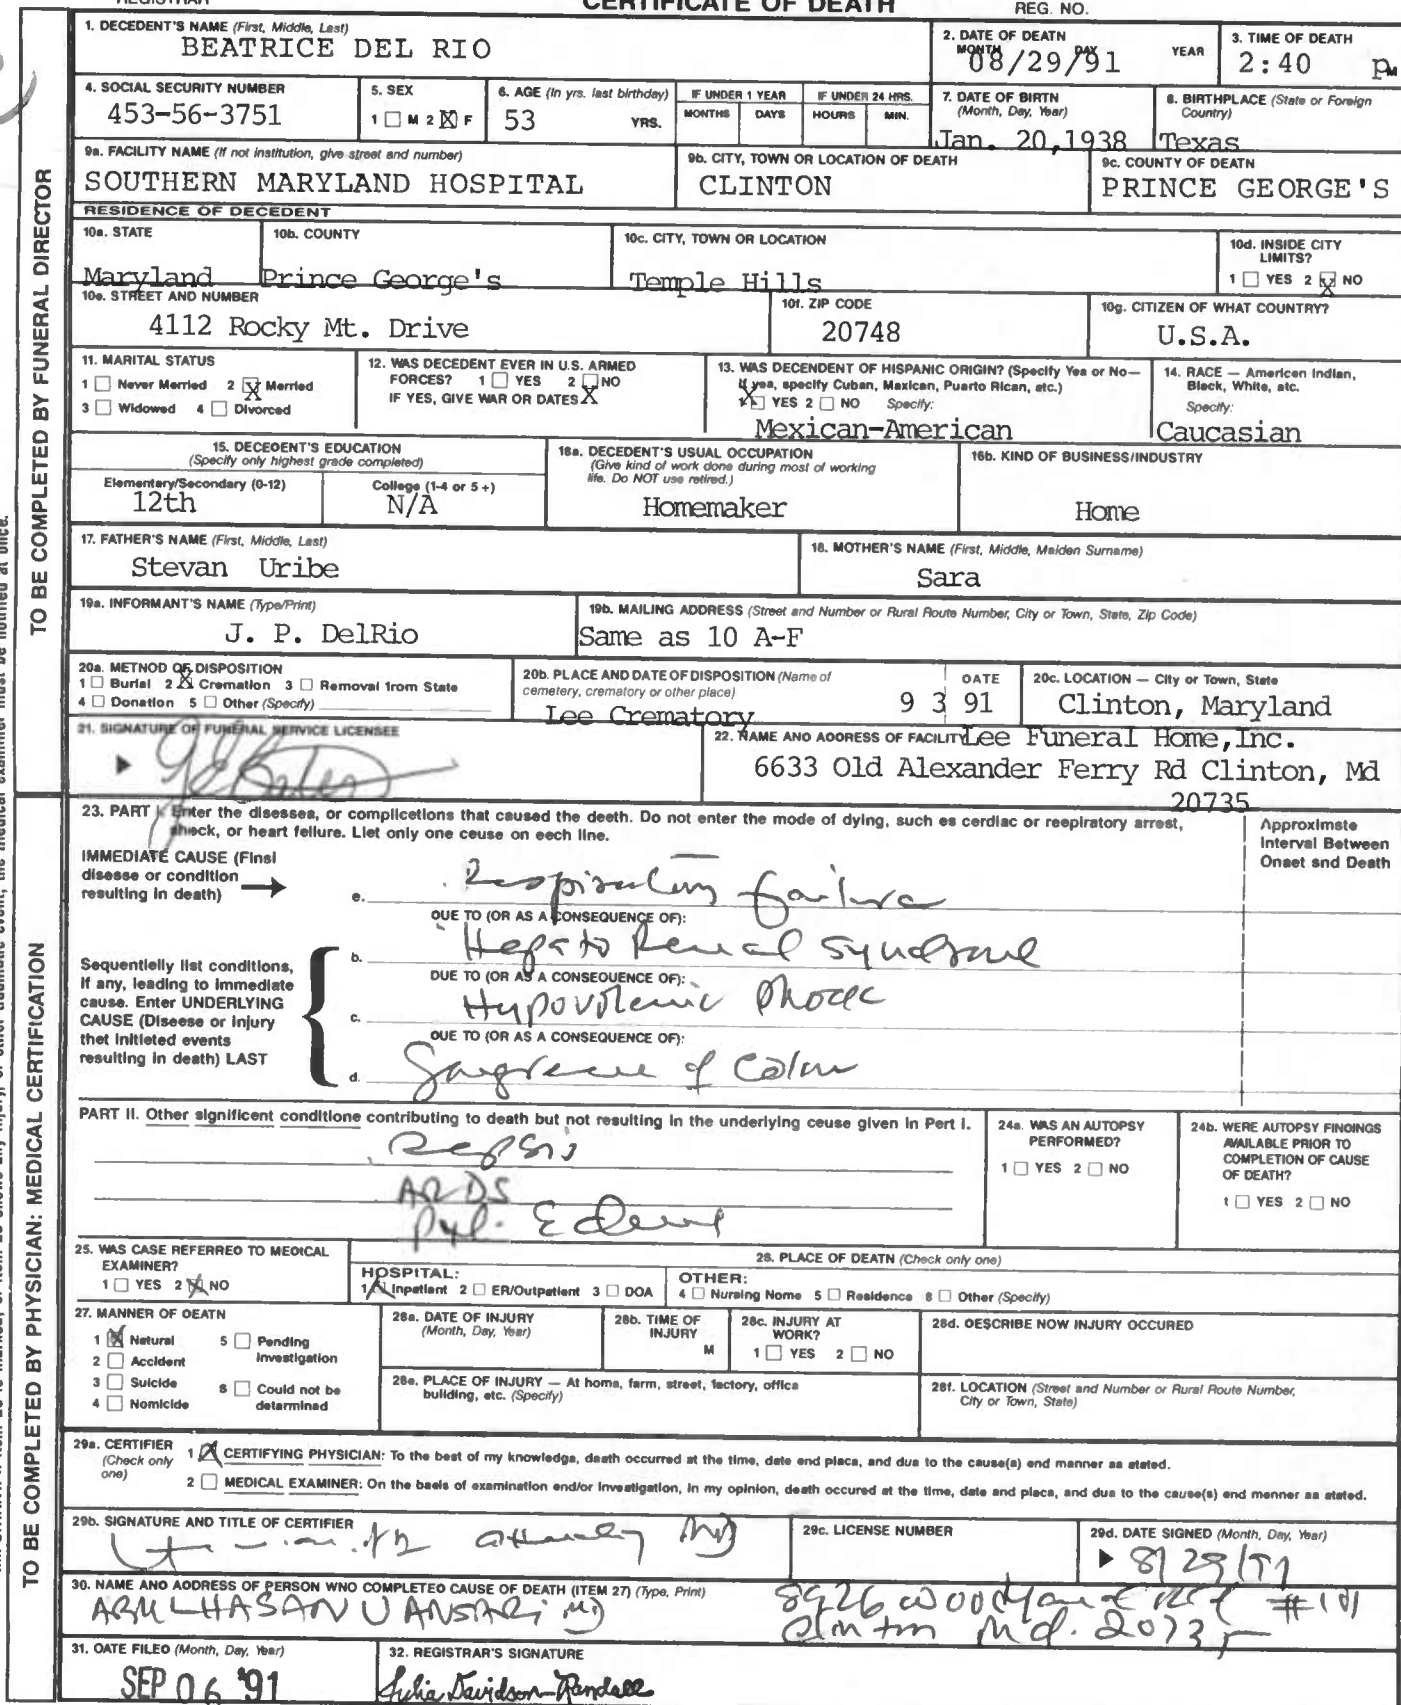 CERTIFICATE OF DEATH
REG. NO.
1. DECEDENT'S NAME (First, Middle, Last)
BEATRICE DEL RIO
2. DATE OF DEATH
MONTH DAY YEAR
08/29/91
3. TIME OF DEATH
2:40 P M
4. SOCIAL SECURITY NUMBER
453-56-3751
5. SEX
1 ☐ M 2 ☒ F
6. AGE (In yrs. last birthday)
53 YRS.
IF UNDER 1 YEAR
MONTHS DAYS
IF UNDER 24 HRS.
HOURS MIN.
7. DATE OF BIRTH
(Month, Day, Year)
Jan. 20,1938
8. BIRTHPLACE (State or Foreign
Country)
Texas
9a. FACILITY NAME (If not institution, give street and number)
SOUTHERN MARYLAND HOSPITAL
9b. CITY, TOWN OR LOCATION OF DEATH
CLINTON
9c. COUNTY OF DEATH
PRINCE GEORGE'S
RESIDENCE OF DECEDENT
10a. STATE
Maryland
10b. COUNTY
Prince George's
10c. CITY, TOWN OR LOCATION
Temple Hills
10d. INSIDE CITY
LIMITS?
1 ☐ YES 2 ☒ NO
10e. STREET AND NUMBER
4112 Rocky Mt. Drive
10f. ZIP CODE
20748
10g. CITIZEN OF WHAT COUNTRY?
U.S.A.
11. MARITAL STATUS
1 ☐ Never Married 2 ☒ Married
3 ☐ Widowed 4 ☐ Divorced
12. WAS DECEDENT EVER IN U.S. ARMED
FORCES? 1 ☐ YES 2 ☒ NO
IF YES, GIVE WAR OR DATES
13. WAS DECENDENT OF HISPANIC ORIGIN? (Specify Yes or No—
If yes, specify Cuban, Maxican, Puarto Rican, etc.)
1 ☒ YES 2 ☐ NO Specify:
Mexican-American
14. RACE — American Indian,
Black, White, atc.
Specify:
Caucasian
15. DECEDENT'S EDUCATION
(Specify only highest grade completed)
Elementary/Secondary (0-12)
12th
College (1-4 or 5+)
N/A
16a. DECEDENT'S USUAL OCCUPATION
(Give kind of work done during most of working
life. Do NOT use retired.)
Homemaker
16b. KIND OF BUSINESS/INDUSTRY
Home
17. FATHER'S NAME (First, Middle, Last)
Stevan Uribe
18. MOTHER'S NAME (First, Middle, Maiden Surname)
Sara
19a. INFORMANT'S NAME (Type/Print)
J. P. DelRio
19b. MAILING ADDRESS (Street and Number or Rural Route Number, City or Town, State, Zip Code)
Same as 10 A-F
20a. METHOD OF DISPOSITION
1 ☐ Burial 2 ☒ Cremation 3 ☐ Removal from State
4 ☐ Donation 5 ☐ Other (Specify)
20b. PLACE AND DATE OF DISPOSITION (Name of
cemetery, crematory or other place)
Lee Crematory
DATE
9 3 91
20c. LOCATION — City or Town, State
Clinton, Maryland
21. SIGNATURE OF FUNERAL SERVICE LICENSEE
22. NAME AND ADDRESS OF FACILITY Lee Funeral Home,Inc.
6633 Old Alexander Ferry Rd Clinton, Md
20735
23. PART I. Enter the diseases, or complications that caused the death. Do not enter the mode of dying, such as cardiac or respiratory arrest,
shock, or heart failure. List only one cause on each line.
Approximate
Interval Between
Onset and Death
IMMEDIATE CAUSE (Final
disease or condition
resulting in death)
a. Respiratory failure
DUE TO (OR AS A CONSEQUENCE OF):
b. Hepato Renal Syndrome
DUE TO (OR AS A CONSEQUENCE OF):
c. Hypovolemic Shock
DUE TO (OR AS A CONSEQUENCE OF):
d. Gangrene of Colon
Sequentially list conditions,
if any, leading to immediate
cause. Enter UNDERLYING
CAUSE (Disease or injury
that initiated events
resulting in death) LAST
PART II. Other significant conditions contributing to death but not resulting in the underlying cause given in Part I.
Sepsis
ARDS
Pul. Edema
24a. WAS AN AUTOPSY
PERFORMED?
1 ☐ YES 2 ☐ NO
24b. WERE AUTOPSY FINDINGS
AVAILABLE PRIOR TO
COMPLETION OF CAUSE
OF DEATH?
1 ☐ YES 2 ☐ NO
25. WAS CASE REFERRED TO MEDICAL
EXAMINER?
1 ☐ YES 2 ☒ NO
26. PLACE OF DEATH (Check only one)
HOSPITAL:
1 ☒ Inpatient 2 ☐ ER/Outpatient 3 ☐ DOA
OTHER:
4 ☐ Nursing Home 5 ☐ Residence 6 ☐ Other (Specify)
27. MANNER OF DEATH
1 ☒ Natural 5 ☐ Pending
Investigation
2 ☐ Accident
3 ☐ Suicide 6 ☐ Could not be
determined
4 ☐ Homicide
28a. DATE OF INJURY
(Month, Day, Year)
28b. TIME OF
INJURY
M
28c. INJURY AT
WORK?
1 ☐ YES 2 ☐ NO
28d. DESCRIBE HOW INJURY OCCURED
28e. PLACE OF INJURY — At homa, farm, street, factory, office
building, etc. (Specify)
28f. LOCATION (Street and Number or Rural Route Number,
City or Town, State)
29a. CERTIFIER
(Check only
one)
1 ☒ CERTIFYING PHYSICIAN: To the best of my knowledge, death occurred at the time, date and place, and due to the cause(s) and manner as stated.
2 ☐ MEDICAL EXAMINER: On the basis of examination and/or investigation, in my opinion, death occured at the time, date and place, and due to the cause(s) and manner as stated.
29b. SIGNATURE AND TITLE OF CERTIFIER
attending MD
29c. LICENSE NUMBER
29d. DATE SIGNED (Month, Day, Year)
8/29/91
30. NAME AND ADDRESS OF PERSON WHO COMPLETED CAUSE OF DEATH (ITEM 27) (Type, Print)
ABULHASAN U ANSARI MD
8926 Woodyard Rd #101
Clinton Md. 20735
31. DATE FILED (Month, Day, Year)
SEP 06 '91
32. REGISTRAR'S SIGNATURE
Julia Davidson-Randall
TO BE COMPLETED BY FUNERAL DIRECTOR
TO BE COMPLETED BY PHYSICIAN: MEDICAL CERTIFICATION